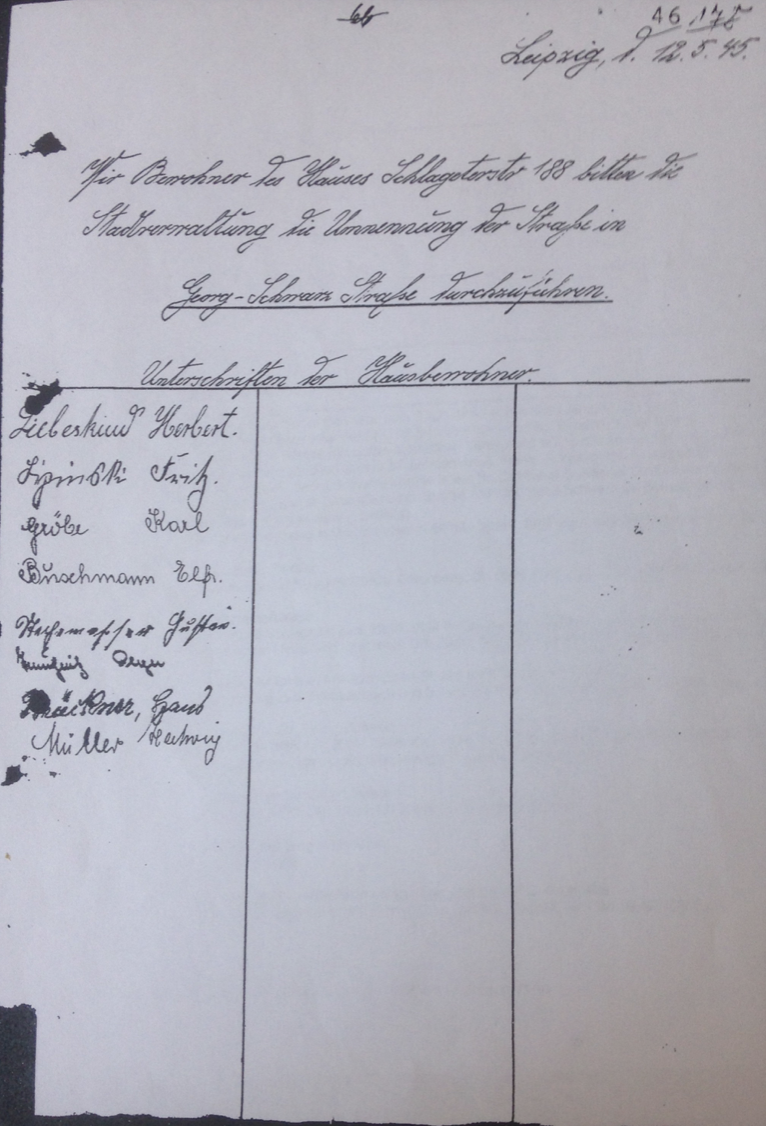 46
Leipzig, d. 12.5.45.
Wir Bewohner des Hauses Schlageterstr 188 bitten die
Stadtverwaltung die Umnennung der Straße in
Georg-Schwarz Straße durchzuführen.
Unterschriften der Hausbewohner.
Liebeskind Herbert.
Lipinski Fritz.
Gröbe Karl
Buschmann Elfr.
Gustav.
Brückner, Hans
Müller Hedwig